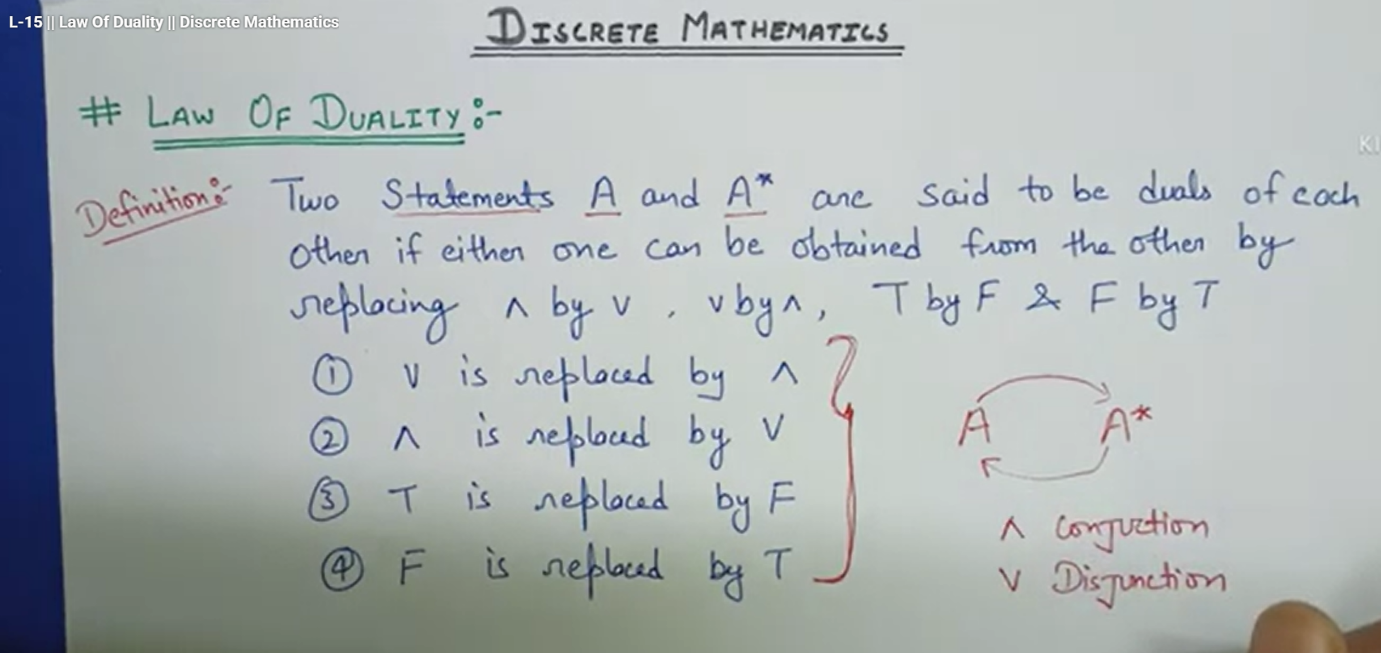 L-15 || Law Of Duality || Discrete Mathematics
DISCRETE MATHEMATICS
# LAW OF DUALITY :-
Definition:- Two Statements A and A* are said to be duals of each
other if either one can be obtained from the other by
replacing ∧ by ∨ , ∨ by ∧, T by F & F by T
① ∨ is replaced by ∧
② ∧ is replaced by ∨
③ T is replaced by F
④ F is replaced by T
A A*
∧ Conjuction
∨ Disjunction
KI